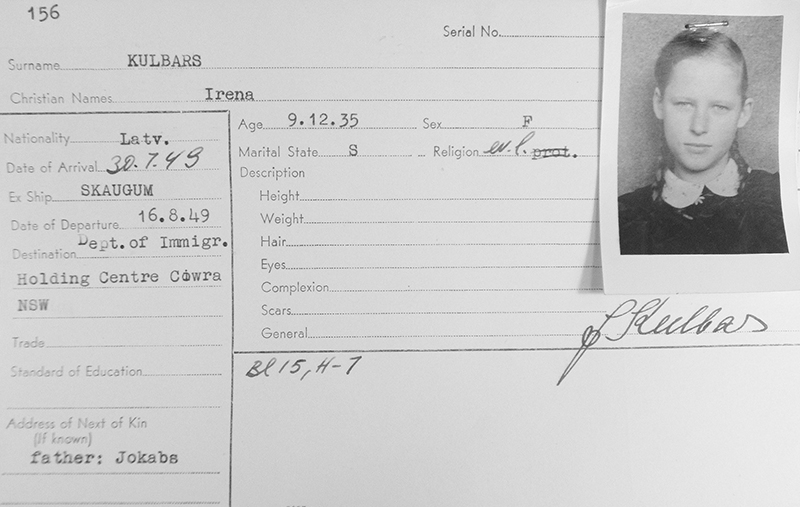 156
Serial No.
Surname KULBARS
Christian Names Irena
Nationality Latv.
Date of Arrival 30.7.49
Ex Ship SKAUGUM
Date of Departure 16.8.49
Destination Dept.of Immigr.
Holding Centre Cowra
NSW
Trade
Standard of Education
Address of Next of Kin
(If known)
father: Jokabs
Age 9.12.35 Sex F
Marital State S Religion ev.l. prot.
Description
Height
Weight
Hair
Eyes
Complexion
Scars
General
J Kulbars
Bl 15, H-7